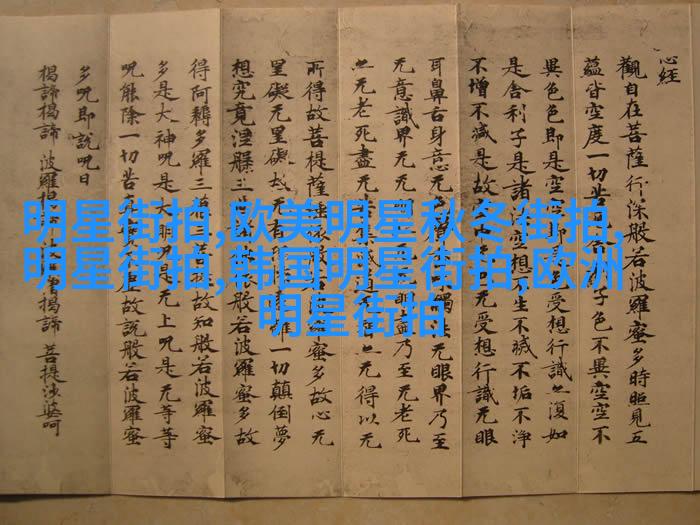 心经
觀自在菩薩行深般若波羅蜜多時照見五
蘊皆空度一切苦子色不異空空不
異色色即是空即是色受想行識亦復如
是舍利子是諸法空想不生不滅不垢不淨
不增不減是故空无受想行識无眼
耳鼻舌身意无觸法无眼界乃至
无意識界无无明盡乃至无老死
亦无老死盡无苦集滅道无亦无得以无
所得故菩提薩埵依般若波羅蜜多故心无
罣礙无罣礙故无有離一切顛倒夢
想究竟涅槃三世般若波羅蜜多故
得阿耨多羅三藐三菩提故知般若波羅蜜
多是大神呪是大明呪是无上呪是无等等
呪能除一切苦真實不虛故說般若波羅蜜
多呪即說呪曰
揭諦揭諦 波羅揭諦 波羅僧揭諦 菩提沙婆呵
明星街拍,欧美明星秋冬街拍,
明星街拍,韩国明星街拍,欧洲
明星街拍